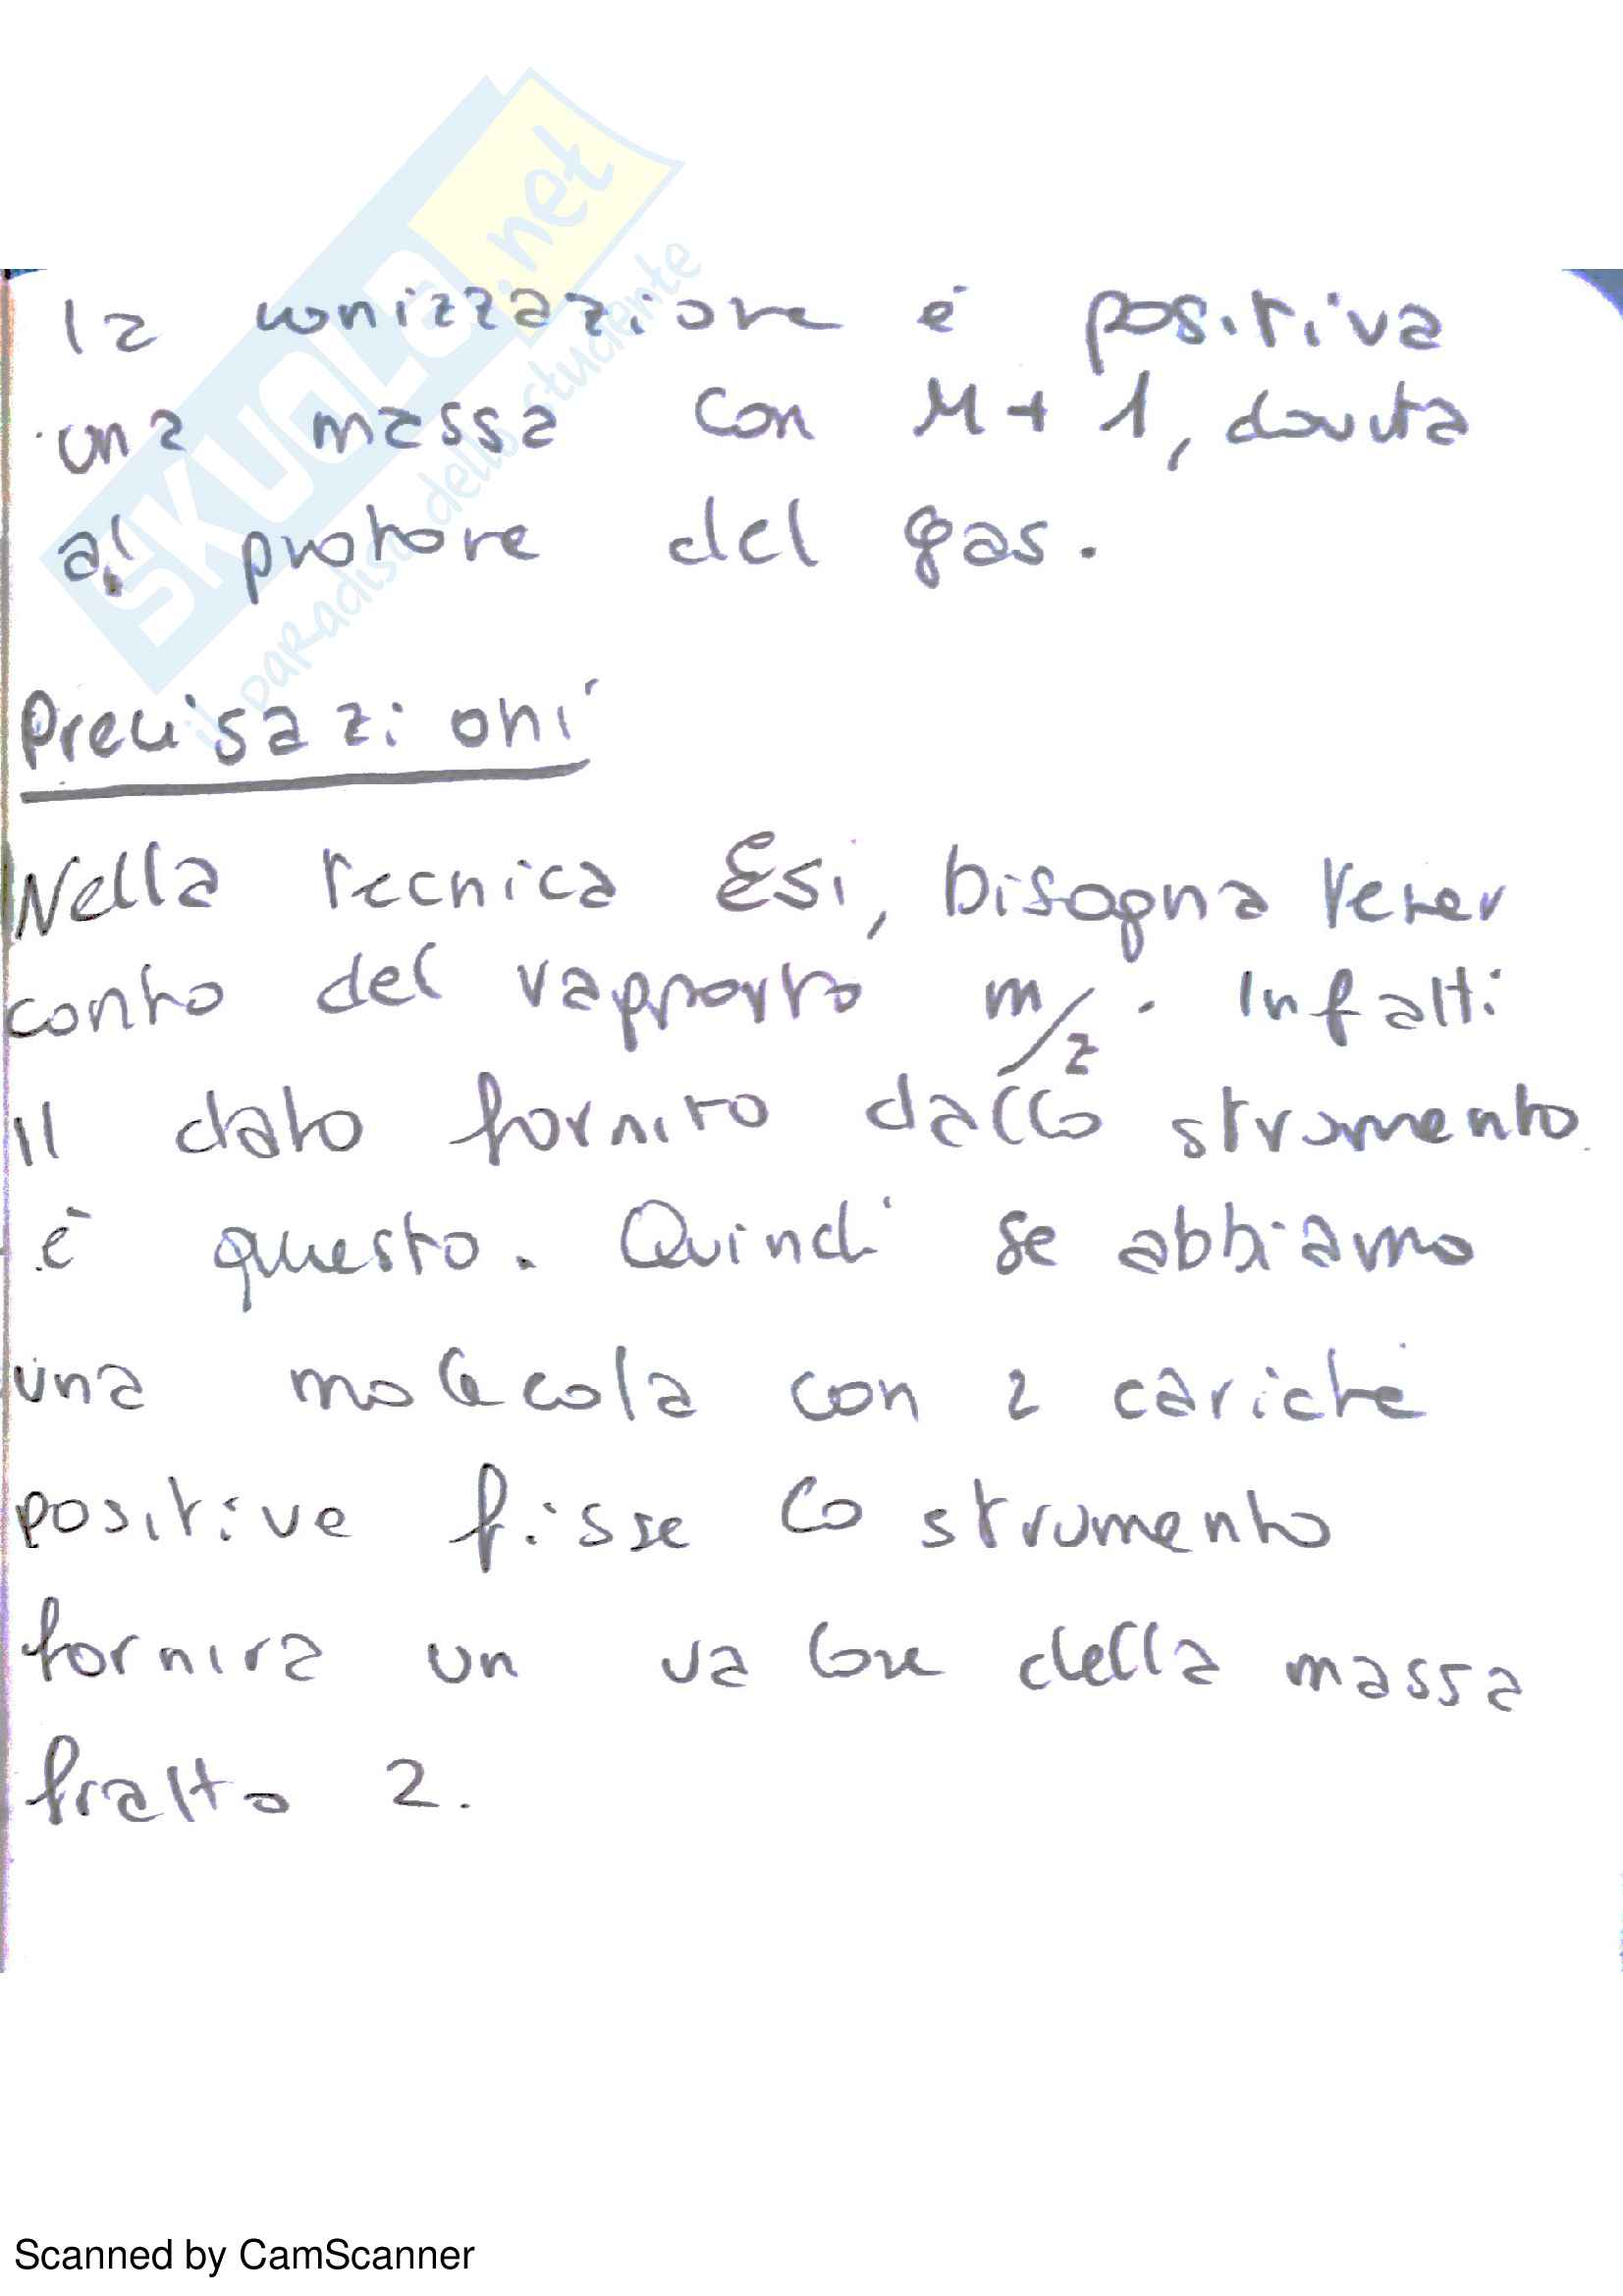 la ionizzazione è positiva
una massa con M+1, dovuta
al protone del gas.
Precisazioni
Nella tecnica Esi, bisogna tener
conto del rapporto m/z. Infatti
il dato fornito dallo strumento
è questo. Quindi se abbiamo
una molecola con 2 cariche
positive fisse lo strumento
fornirà un valore della massa
fratto 2.
SKUOLA.net
il paradiso dello studente
Scanned by CamScanner